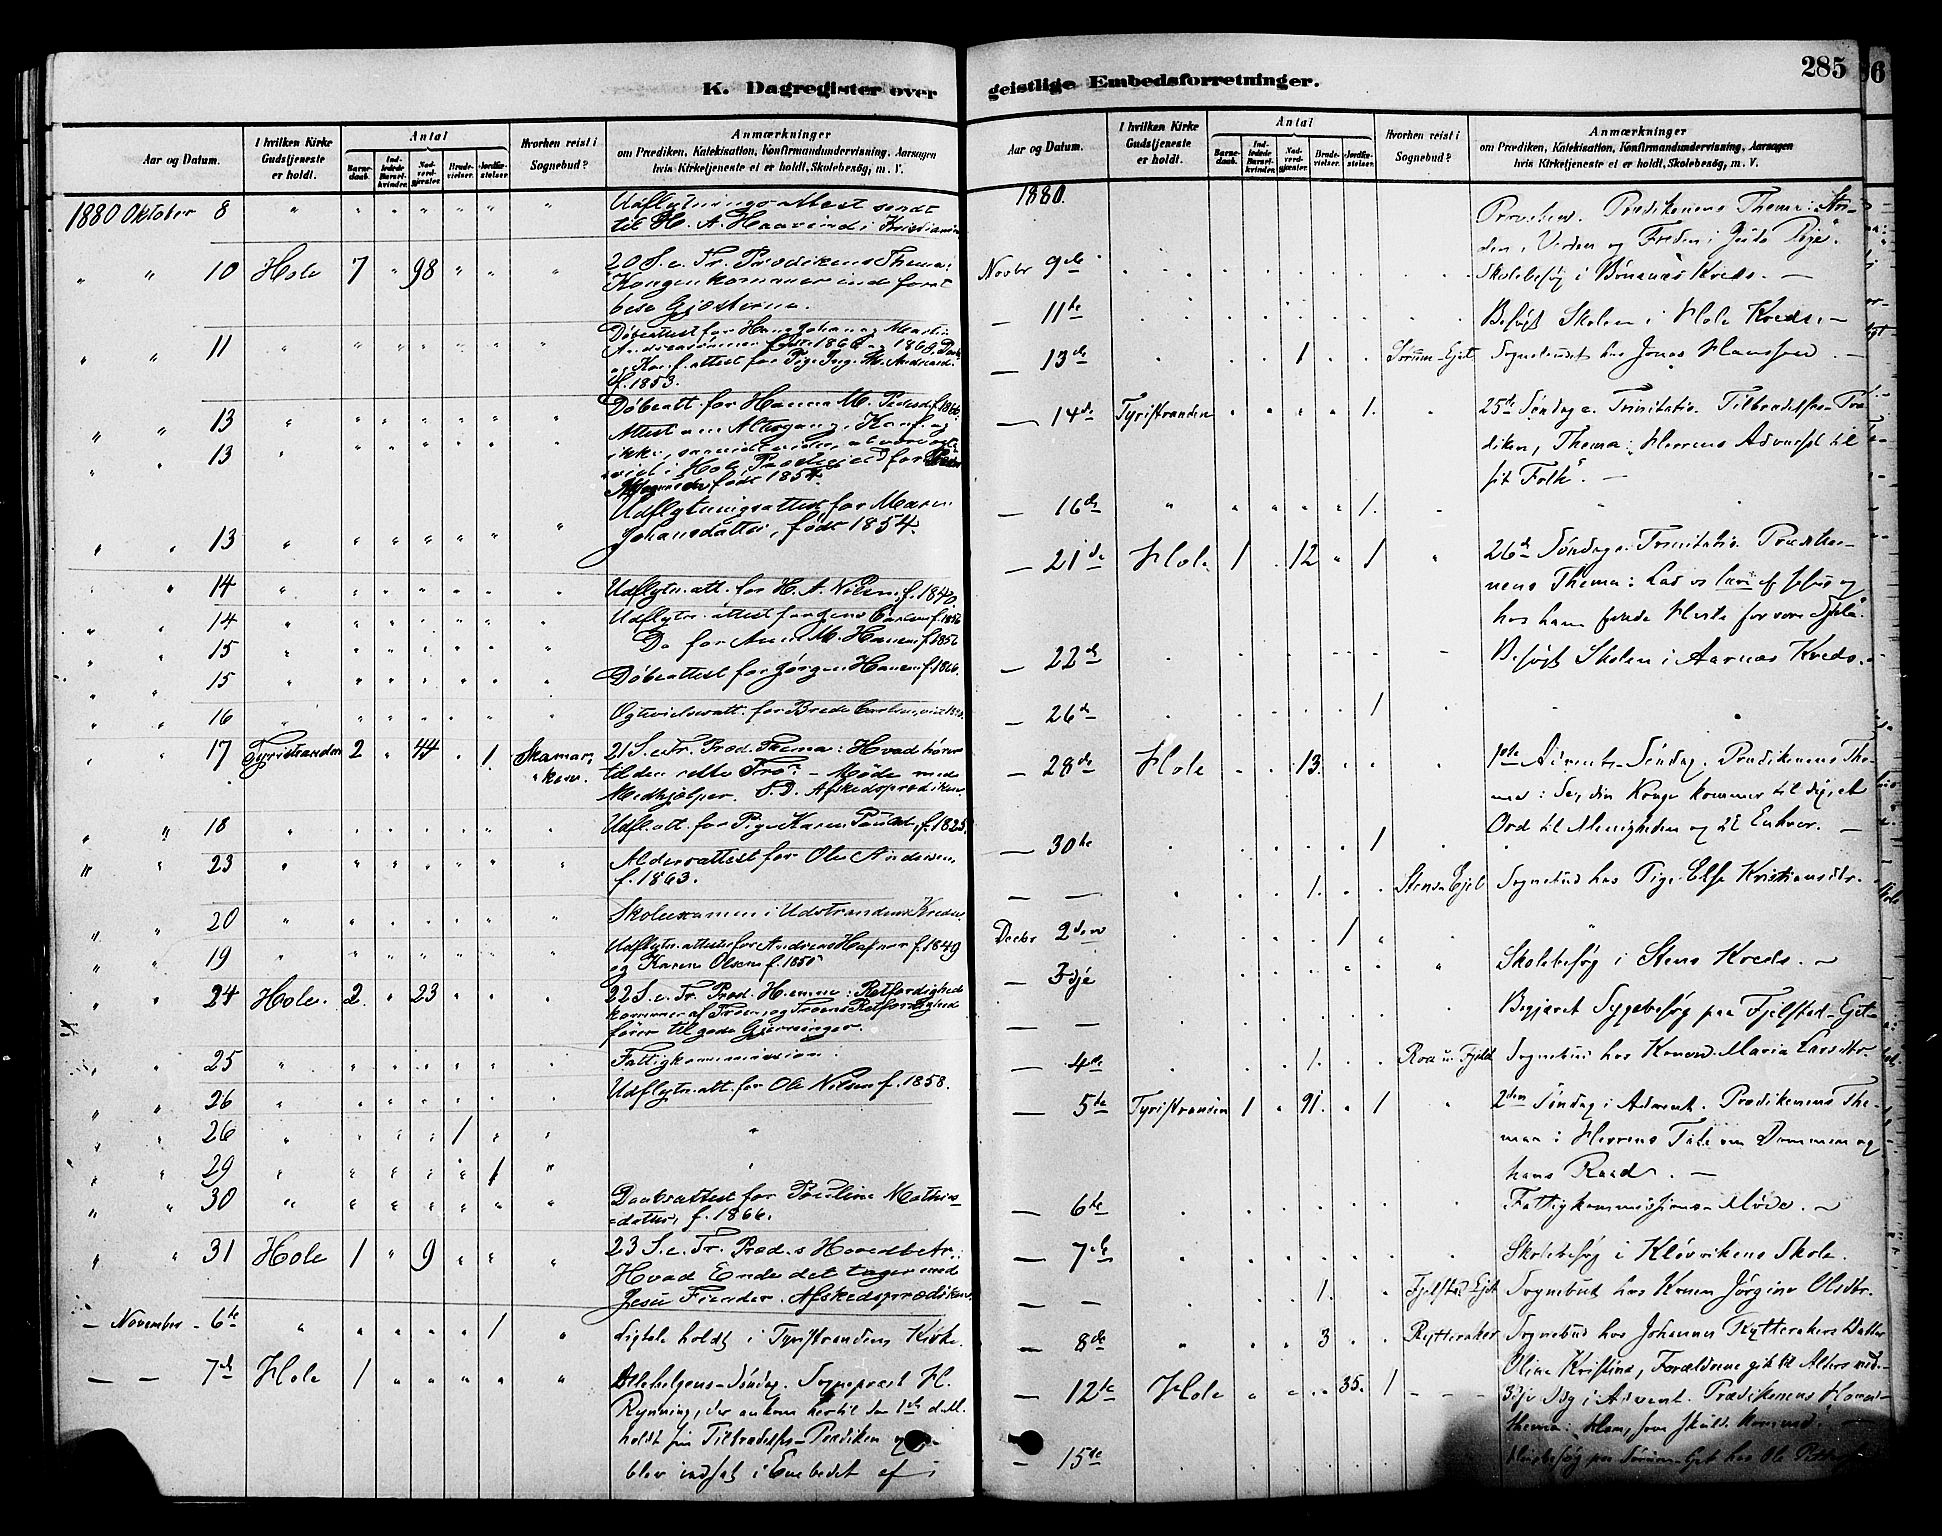 K. Dagregister over
Aar og Datum.
I hvilken Kirke Gudstjeneste er holdt.
Antal
Barnedaab.
Indledede Barselkvinder.
Nadverdgjæster.
Brudevielser.
Jordfæstelser.
Hvorhen reist i Sognebud?
Anmærkninger
om Prædiken, Katekisation, Konfirmandundervisning, Aarsagen
hvis Kirketjeneste ei er holdt, Skolebesøg, m. V.
1880 Oktober 8 Udflytningsattest sendt
til H. A. Haavind i Kristiania
" " 10 Hole 7 " 98 " " " 20 S. e. Tr. Prædikens Thema:
Kongen kommer ind for at
bese Gjæsterne.
" " 11 Døbeattest for Hans Johan og Martin
f. 1853.
" " 13 Døbeatt. for Hanna M. Pedersd. f. 1866.
" " 13 Attest om Altergang, i Konf. og
født 1854.
" " 13 Udflytningsattest for Maren
Johansdatter, født 1854.
" " 14 Udflytn. att. for H. A. Nilsen, f. 1840
" " 14 Udflytn. attest for Jens Carlsen f. 1856
" " 15 Do for Anne M. Hansen f. 1856
" " 15 Døbeattest for Jørgen Hansen f. 1866.
" " 16 Ogtevielsesatt. for Brede Carlsen,
" " 17 Tyristranden 2 " 44 " 1. 21 S. e. Tr. Præd. Thema: Hvad hører
til den rette Tro? - Møde med
Medhjælper. S. D. Afskedsprædiken.
" " 18 Udfl. att. for Pige Karen Paulsd., f. 1825.
" " 23 Aldersattest for Ole Andersen,
f. 1863.
" " 20 Skoleexamen i Udstrandens Kreds.
" " 19 Udflytn. attest for Andreas f. 1849
og Karen Olsen f. 1850
" " 24 Hole. 2. " 23 " " " 22 S. e. Tr. Præd. Retfærdighed
kommer af Troen, og Troens Retfærdighed
fører til gode Gjerninger.
" " 25 Fattigkommission.
" " 26 Udflytn. att. for Ole Nilsen f. 1858.
" " 26 1
" " 29 1
" " 30 Daabsattest for Pauline Mathis-
=datter, f. 1866.
" " 31 Hole 1 " 9 " " " 23 S. e. Tr. Præd.s Hovedbetr.:
Hvad Ende det tager med
Jesu Fiender. Afskedsprædiken.
— November - 6te 1 Ligtale holdt i Tyristrandens Kirke.
— — 7de Hole 1 Allehelgens-Søndag. Sognepræst H.
Rynning, der ankom hertil den 1ste d. M.
holdt sin Tiltrædelses-Prædiken og
blev indsat i Embedet af
geistlige Embedsforretninger.
285
Aar og Datum.
I hvilken Kirke Gudstjeneste er holdt.
Antal
Barnedaab.
Indledede Barselkvinder.
Nadverdgjæster.
Brudevielser.
Jordfæstelser.
Hvorhen reist i Sognebud?
Anmærkninger
om Prædiken, Katekisation, Konfirmandundervisning, Aarsagen
hvis Kirketjeneste ei er holdt, Skolebesøg, m. V.
1880. Provsten. Prædikenens Thema:
den, Verden og Freden i Guds
Novbr 9de Skolebesøg i Bønsnæs Kreds. —
— 11te Besøgt Skolen i Hole Kreds. —
— 13de 1 Sørum-Ejet Sognebudet hos Jonas Hanssen. —
— 14de Tyristranden 1. 25de Søndag e. Trinitatis. Tiltrædelses-Præ-
diken, Thema: Herrens til
sit Folk". —
— 16de 1.
— 21de Hole 1 . 12 " 1 26de Søndag e. Trinitatis. Prædike-
nens Thema: Lad os lære af Jesus og
hos ham finde Hvile for vore Sjæle"
— 22de Besøgt Skolen i Aarnæs Kreds. —
— 26de 1
— 28de Hole . . 13. 1ste Advents-Søndag. Prædikenens The-
ma: Se, din Konge kommer til dig, et
Ord til Menigheden og til Enhver. —
— 30te 1
— — 1. Stens-Ejet Sognebud hos Pige Else Kristiansdtr.
Decbr 2den 1
— 3dje Skolebesøg i Stens Kreds. —
— — Begjæret Sygebesøg paa Fjelstad-Ejet—
— 4de 1. Roa u. Fjeld Sognebud hos Konen Maria Larsdtr.
— 5te Tyristranden 1 . 91. . 1 2den Søndag i Advent. Prædikenens The-
ma: Herrens Tale om Dommen og
hans Raad. —
— 6te Fattigkommissions-Møde. —
— 7de Skolebesøg i Kløvvikens Skole.
— — 1. Fjelstad-Ejet Sognebud hos Konen Jørgine Olsdtr.
— 8de 3 Rytteraker Sognebud hos Johannes Rytterakers Datter
Oline Kristine, Forældrene gik til Alters med.
— 12te Hole 35. 1 3dje Sdg i Advent. Prædikenens Hoved-
thema: Ham, som skulde komme. —
— 15de paa Sørum-Ejet hos Ole